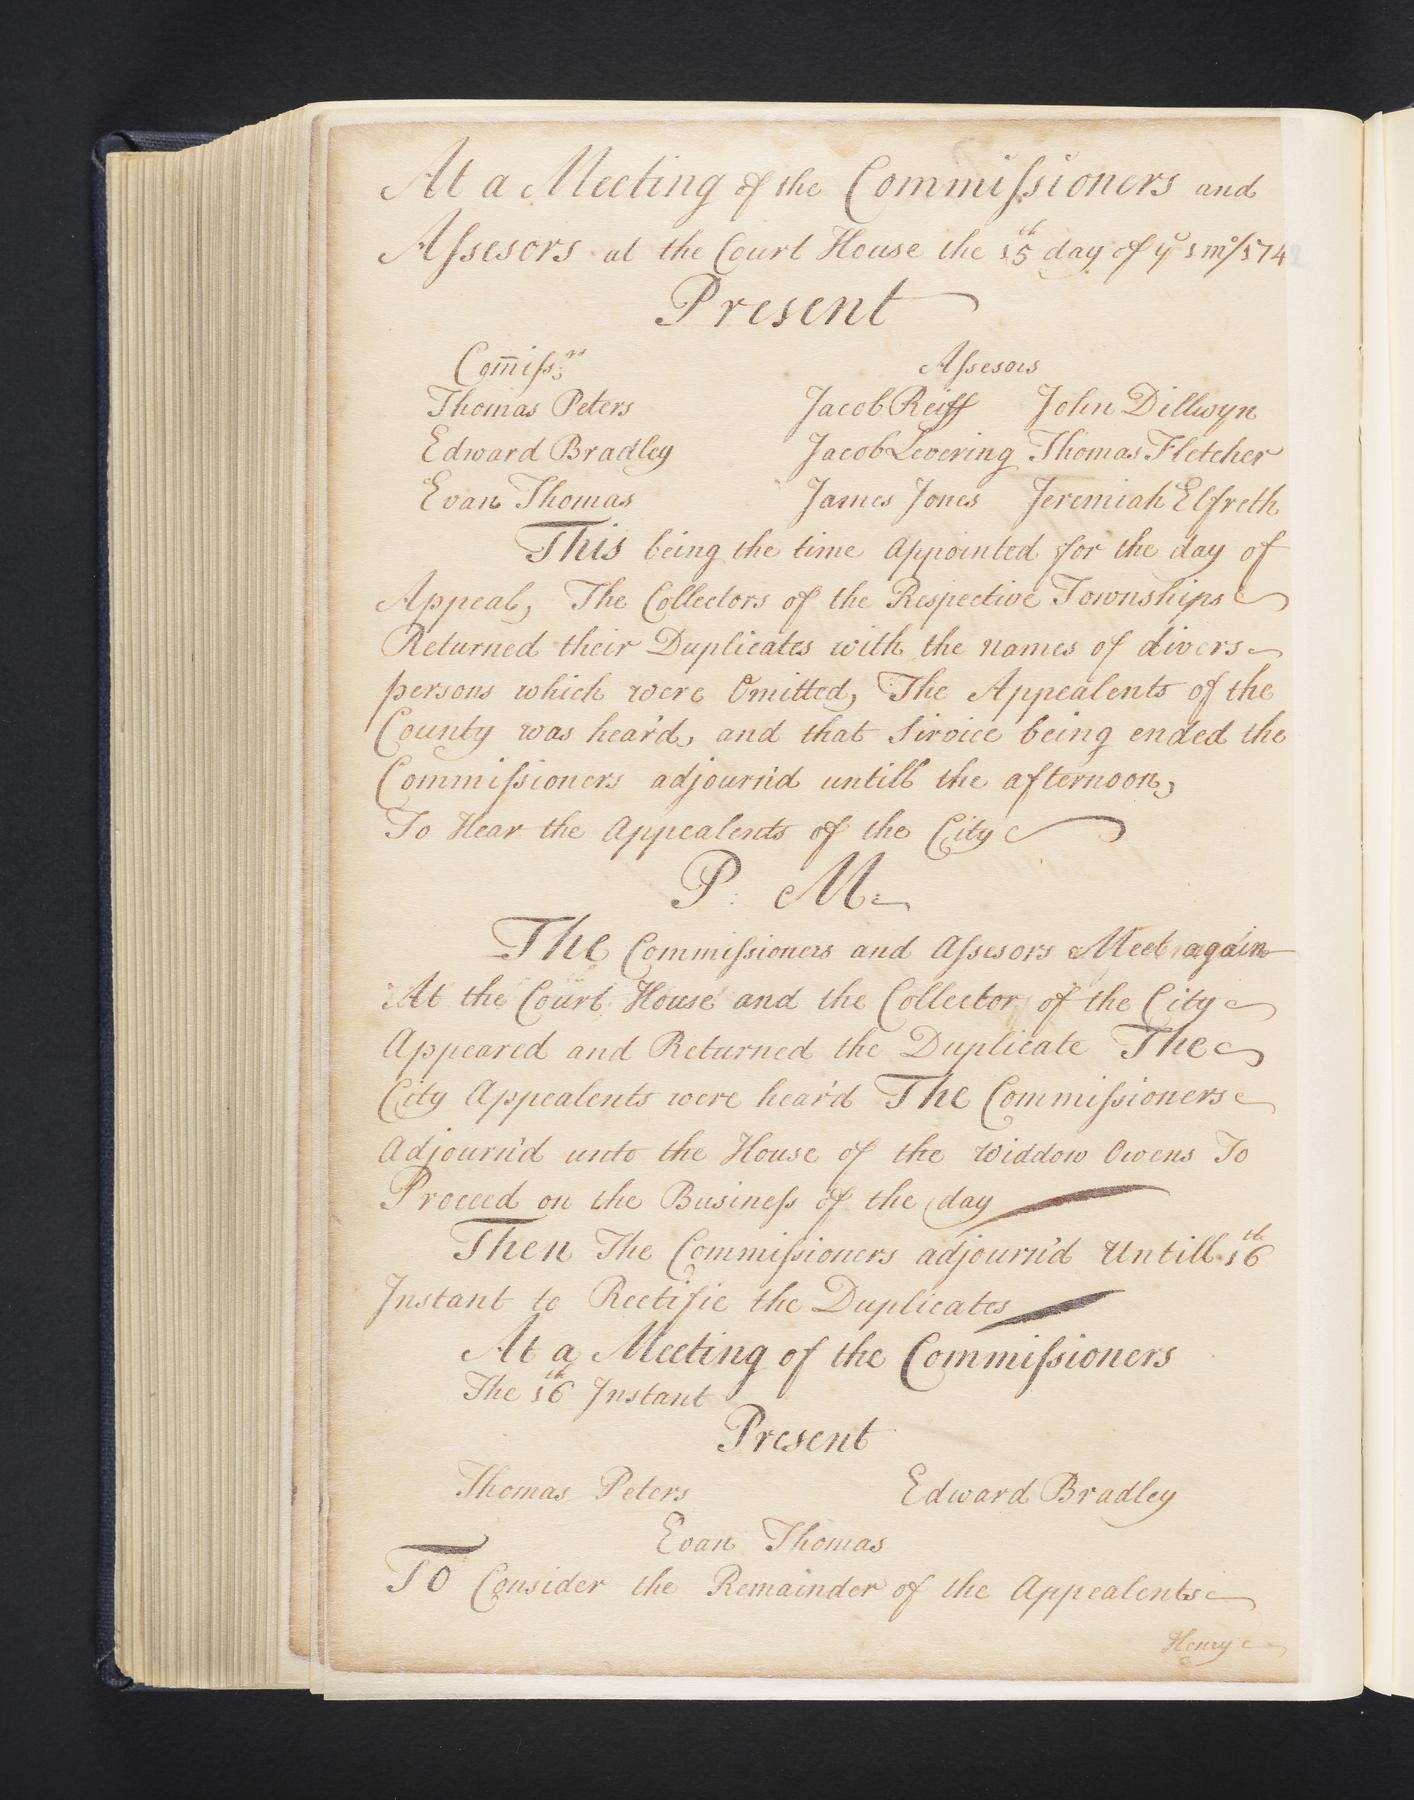 At a Meeting of the Commiſsioners and
Aſsesors at the Court House the 15th day of yo 1 mo/1742
Present
Com̄iſs:rs Aſsesors
Thomas Peters Jacob Reiff John Dillwyn
Edward Bradley Jacob Levering Thomas Fletcher
Evan Thomas James Jones Jeremiah Elfreth
This being the time appointed for the day of
Appeal, The Collectors of the Respective Townships
Returned their Duplicates with the names of divers
persons which were Omitted, The Appealents of the
County was hear'd, and that Sirvice being ended the
Commiſsioners adjourn'd untill the afternoon,
To Hear the Appealents of the City
P. M.
The Commiſsioners and Aſsesors Meet again
At the Court House and the Collector of the City
Appeared and Returned the Duplicate The
City Appealents were hear'd The Commiſsioners
Adjourn'd unto the House of the Widdow Owens To
Proceed on the Busineſs of the day
Then The Commiſsioners adjourn'd Untill 16th
Instant to Rectifie the Duplicates
At a Meeting of the Commiſsioners
The 16th Instant
Present
Thomas Peters Edward Bradley
Evan Thomas
To Consider the Remainder of the Appealents
Henry